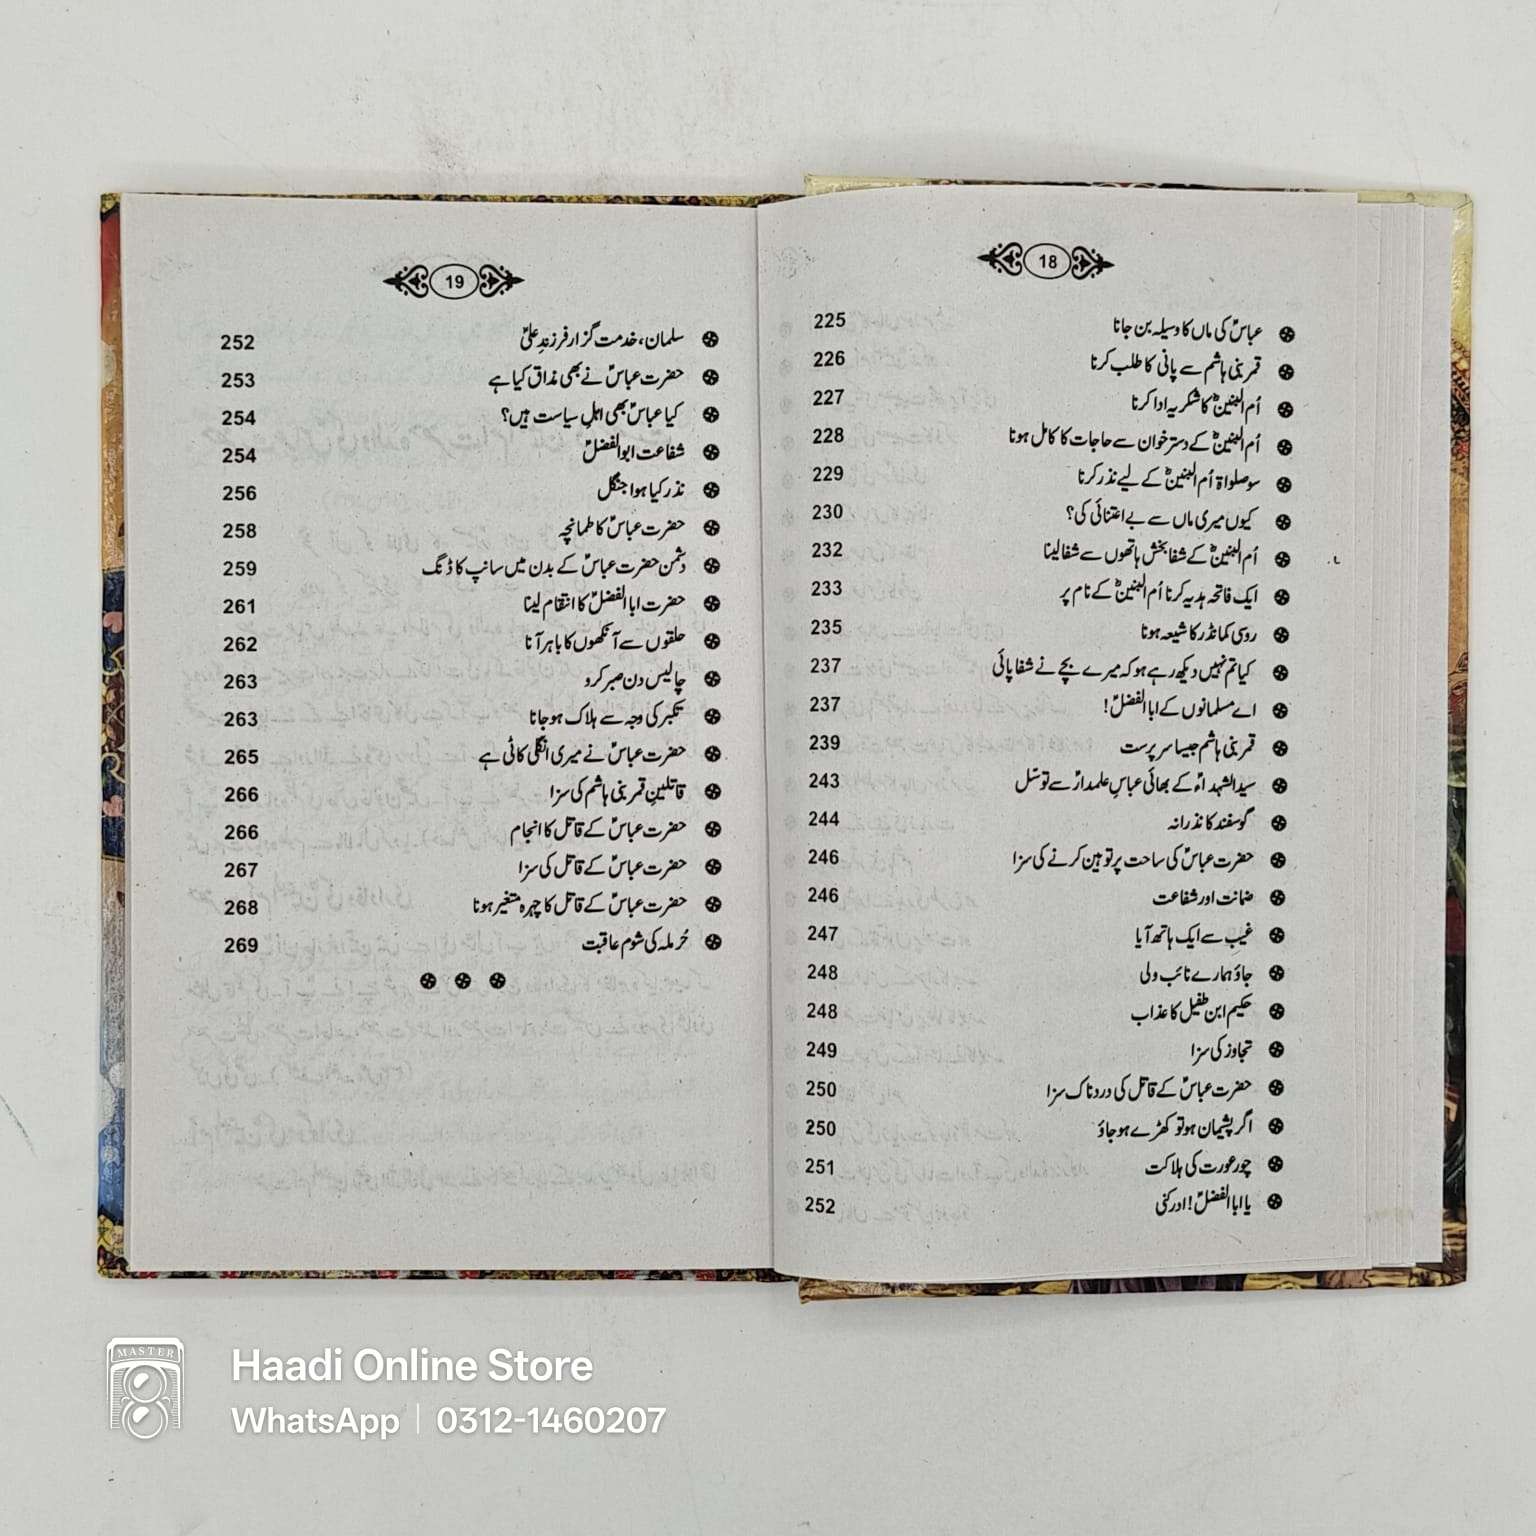 18
عباسؑ کی ماں کا وسیلہ بن جانا 225
قمر بنی ہاشم سے پانی کا طلب کرنا 226
اُم البنینؑ کا شکریہ ادا کرنا 227
اُم البنینؑ کے دسترخوان سے حاجات کا کامل ہونا 228
سو صلواۃ اُم البنینؑ کے لیے نذر کرنا 229
کیوں میری ماں سے بے اعتنائی کی؟ 230
اُم البنینؑ کے شفا بخش ہاتھوں سے شفا لینا 232
ایک فاتحہ ہدیہ کرنا اُم البنینؑ کے نام پر 233
روسی کمانڈر کا شیعہ ہونا 235
کیا تم نہیں دیکھ رہے ہو کہ میرے بچے نے شفا پائی 237
اے مسلمانوں کے ابا الفضلؑ! 237
قمر بنی ہاشم جیسا سرپرست 239
سید الشہداءؑ کے بھائی عباسِ علمدارؑ سے توسّل 243
گوسفند کا نذرانہ 244
حضرت عباسؑ کی ساحت پر توہین کرنے کی سزا 246
ضمانت اور شفاعت 246
غیب سے ایک ہاتھ آیا 247
جاؤ ہمارے نائب ولی 248
حکیم ابن طفیل کا عذاب 248
تجاوز کی سزا 249
حضرت عباسؑ کے قاتل کی دردناک سزا 250
اگر پشیمان ہو تو کھڑے ہو جاؤ 250
چور عورت کی ہلاکت 251
یا ابا الفضلؑ! ادرکنی 252
19
سلمان، خدمت گزار فرزندِ علیؑ 252
حضرت عباسؑ نے بھی مذاق کیا ہے 253
کیا عباسؑ بھی اہلِ سیاست ہیں؟ 254
شفاعت ابو الفضلؑ 254
نذر کیا ہوا جنگل 256
حضرت عباسؑ کا طمانچہ 258
دشمن حضرت عباسؑ کے بدن میں سانپ کا ڈنگ 259
حضرت ابا الفضلؑ کا انتقام لینا 261
حلقوں سے آنکھوں کا باہر آنا 262
چالیس دن صبر کرو 263
تکبر کی وجہ سے ہلاک ہو جانا 263
حضرت عباسؑ نے میری انگلی کاٹی ہے 265
قاتلینِ قمر بنی ہاشم کی سزا 266
حضرت عباسؑ کے قاتل کا انجام 266
حضرت عباسؑ کے قاتل کی سزا 267
حضرت عباسؑ کے قاتل کا چہرہ متغیر ہونا 268
حُرملہ کی شوم عاقبت 269
MASTER
Haadi Online Store
WhatsApp | 0312-1460207